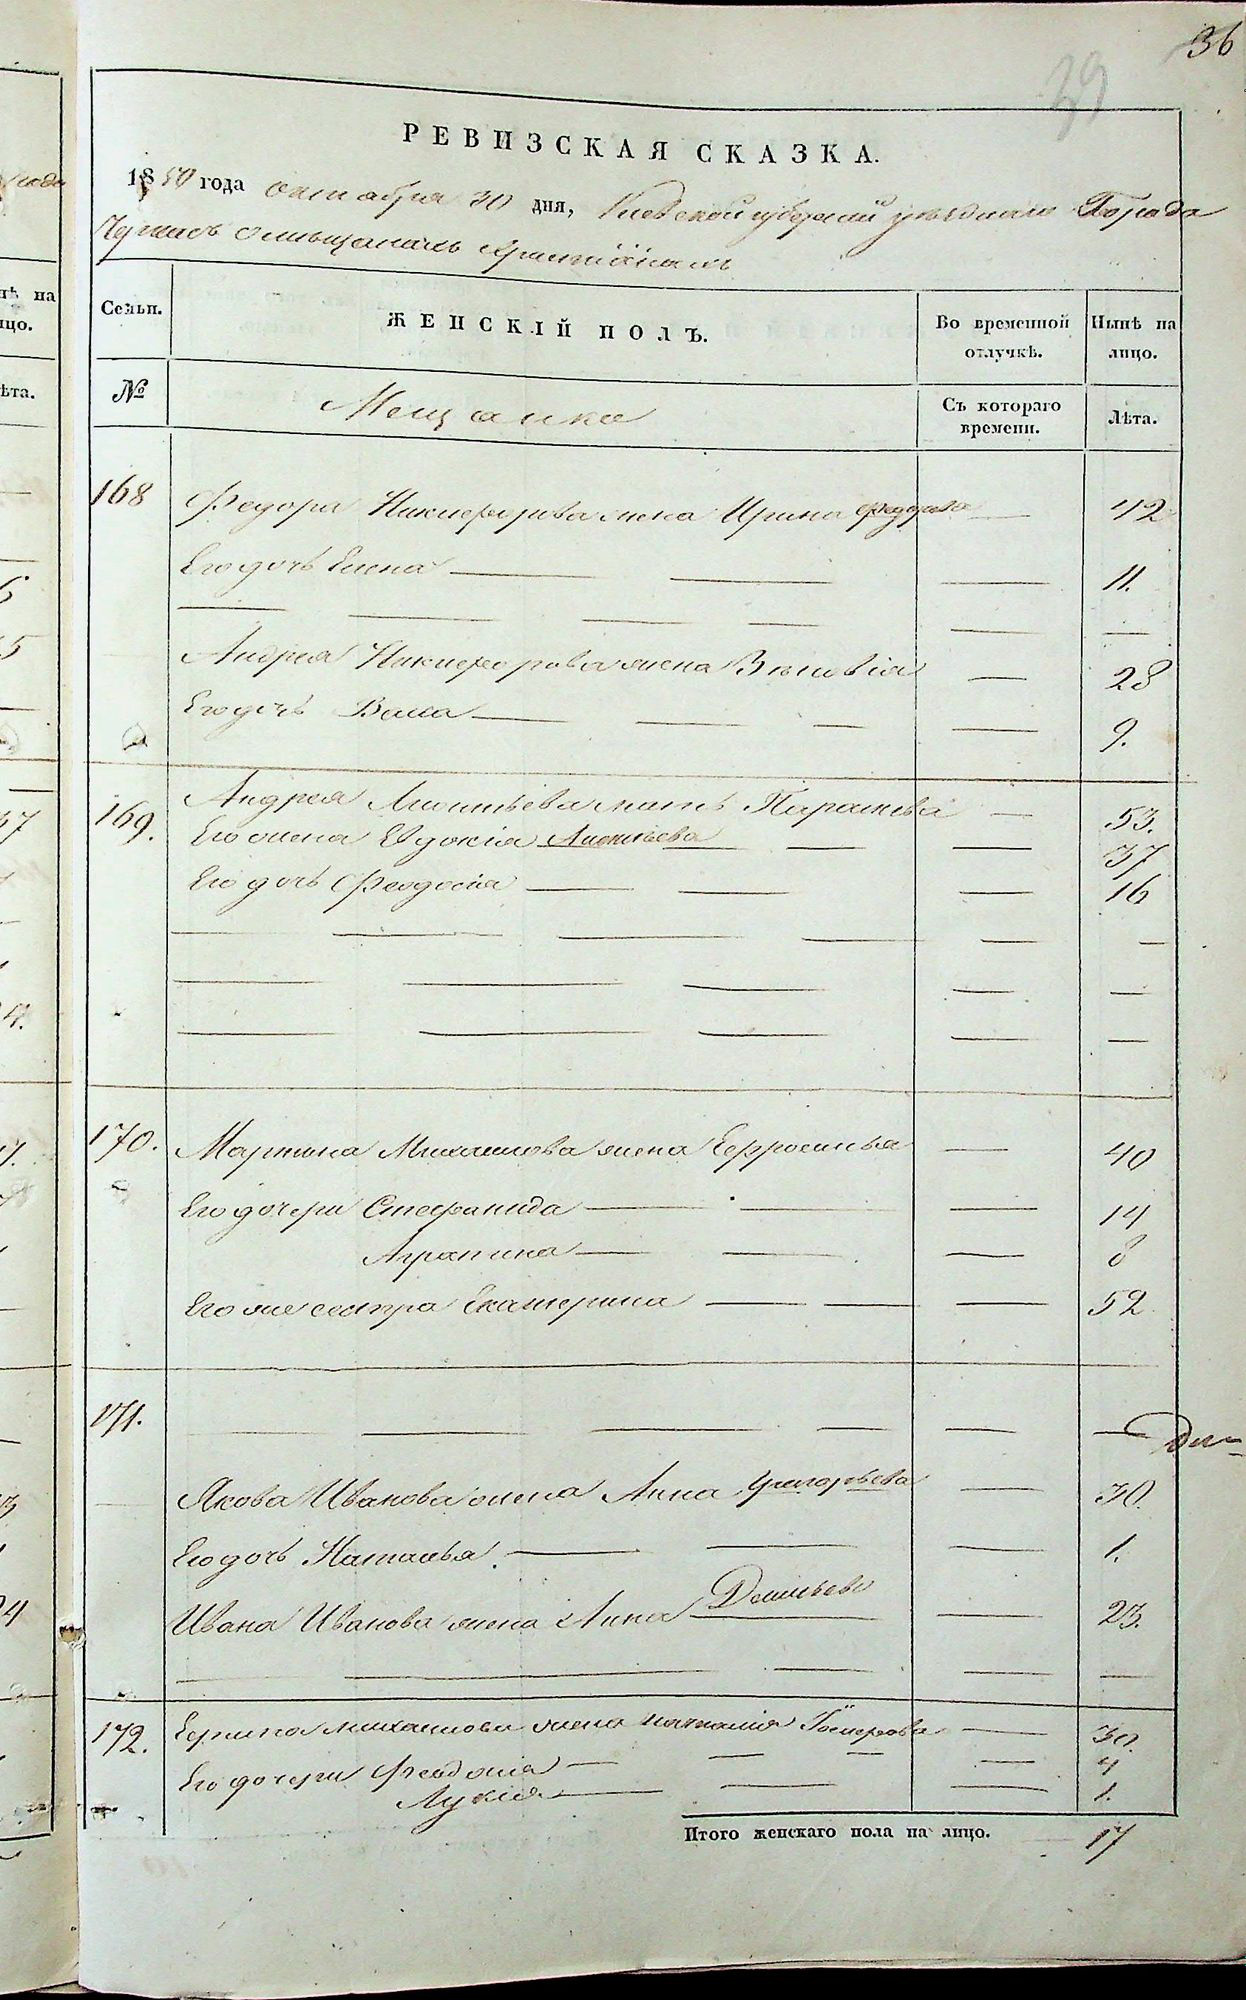 36
29
РЕВИЗСКАЯ СКАЗКА.
1850 года октября 30 дня, Киевской губернии уезднаго Города
о мещанахъ христіанахъ
Семьи. ЖЕНСКІЙ ПОЛЪ. Во временной отлучкѣ. Нынѣ на лицо.
№ Мещанко Съ котораго времени. Лѣта.
168 Федора Никифорова жена Ирина Федорова — 42
Его дочь Елена — — — 11.
— — — — — —
Андрея Никифорова жена Зѣновія — 28
Его дочь Васса — — — — 9.
169. Андрея Леонтьева мать Параскева — 53.
Его жена Евдокія Леонтьева — — 37
Его дочь Феодосія — — — 16
— — — — — —
— — — — —
— — — — —
170. Мартина Михайлова жена Ефросинья — 40
Его дочери Стефанида — — — 14
Агрипина — — — 8
Его же сестра Екатерина — — — 52
171. — — — — — —
Якова Иванова жена Анна Григорьева — 30.
Его дочь Наталья. — — — 1.
Ивана Иванова жена Анна Демььева — 23.
— — — — —
172. Михайлова жена Наталія — 30.
Его дочери Феодосія — — — — 4
Лукія — — — 1.
Итого женскаго пола на лицо. 17